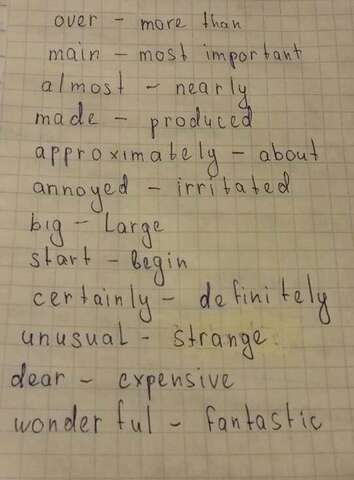 over - more than
main - most important
almost - nearly
made - produced
approximately - about
annoyed - irritated
big - Large
start - Begin
certainly - definitely
unusual - strange
dear - expensive
wonderful - fantastic